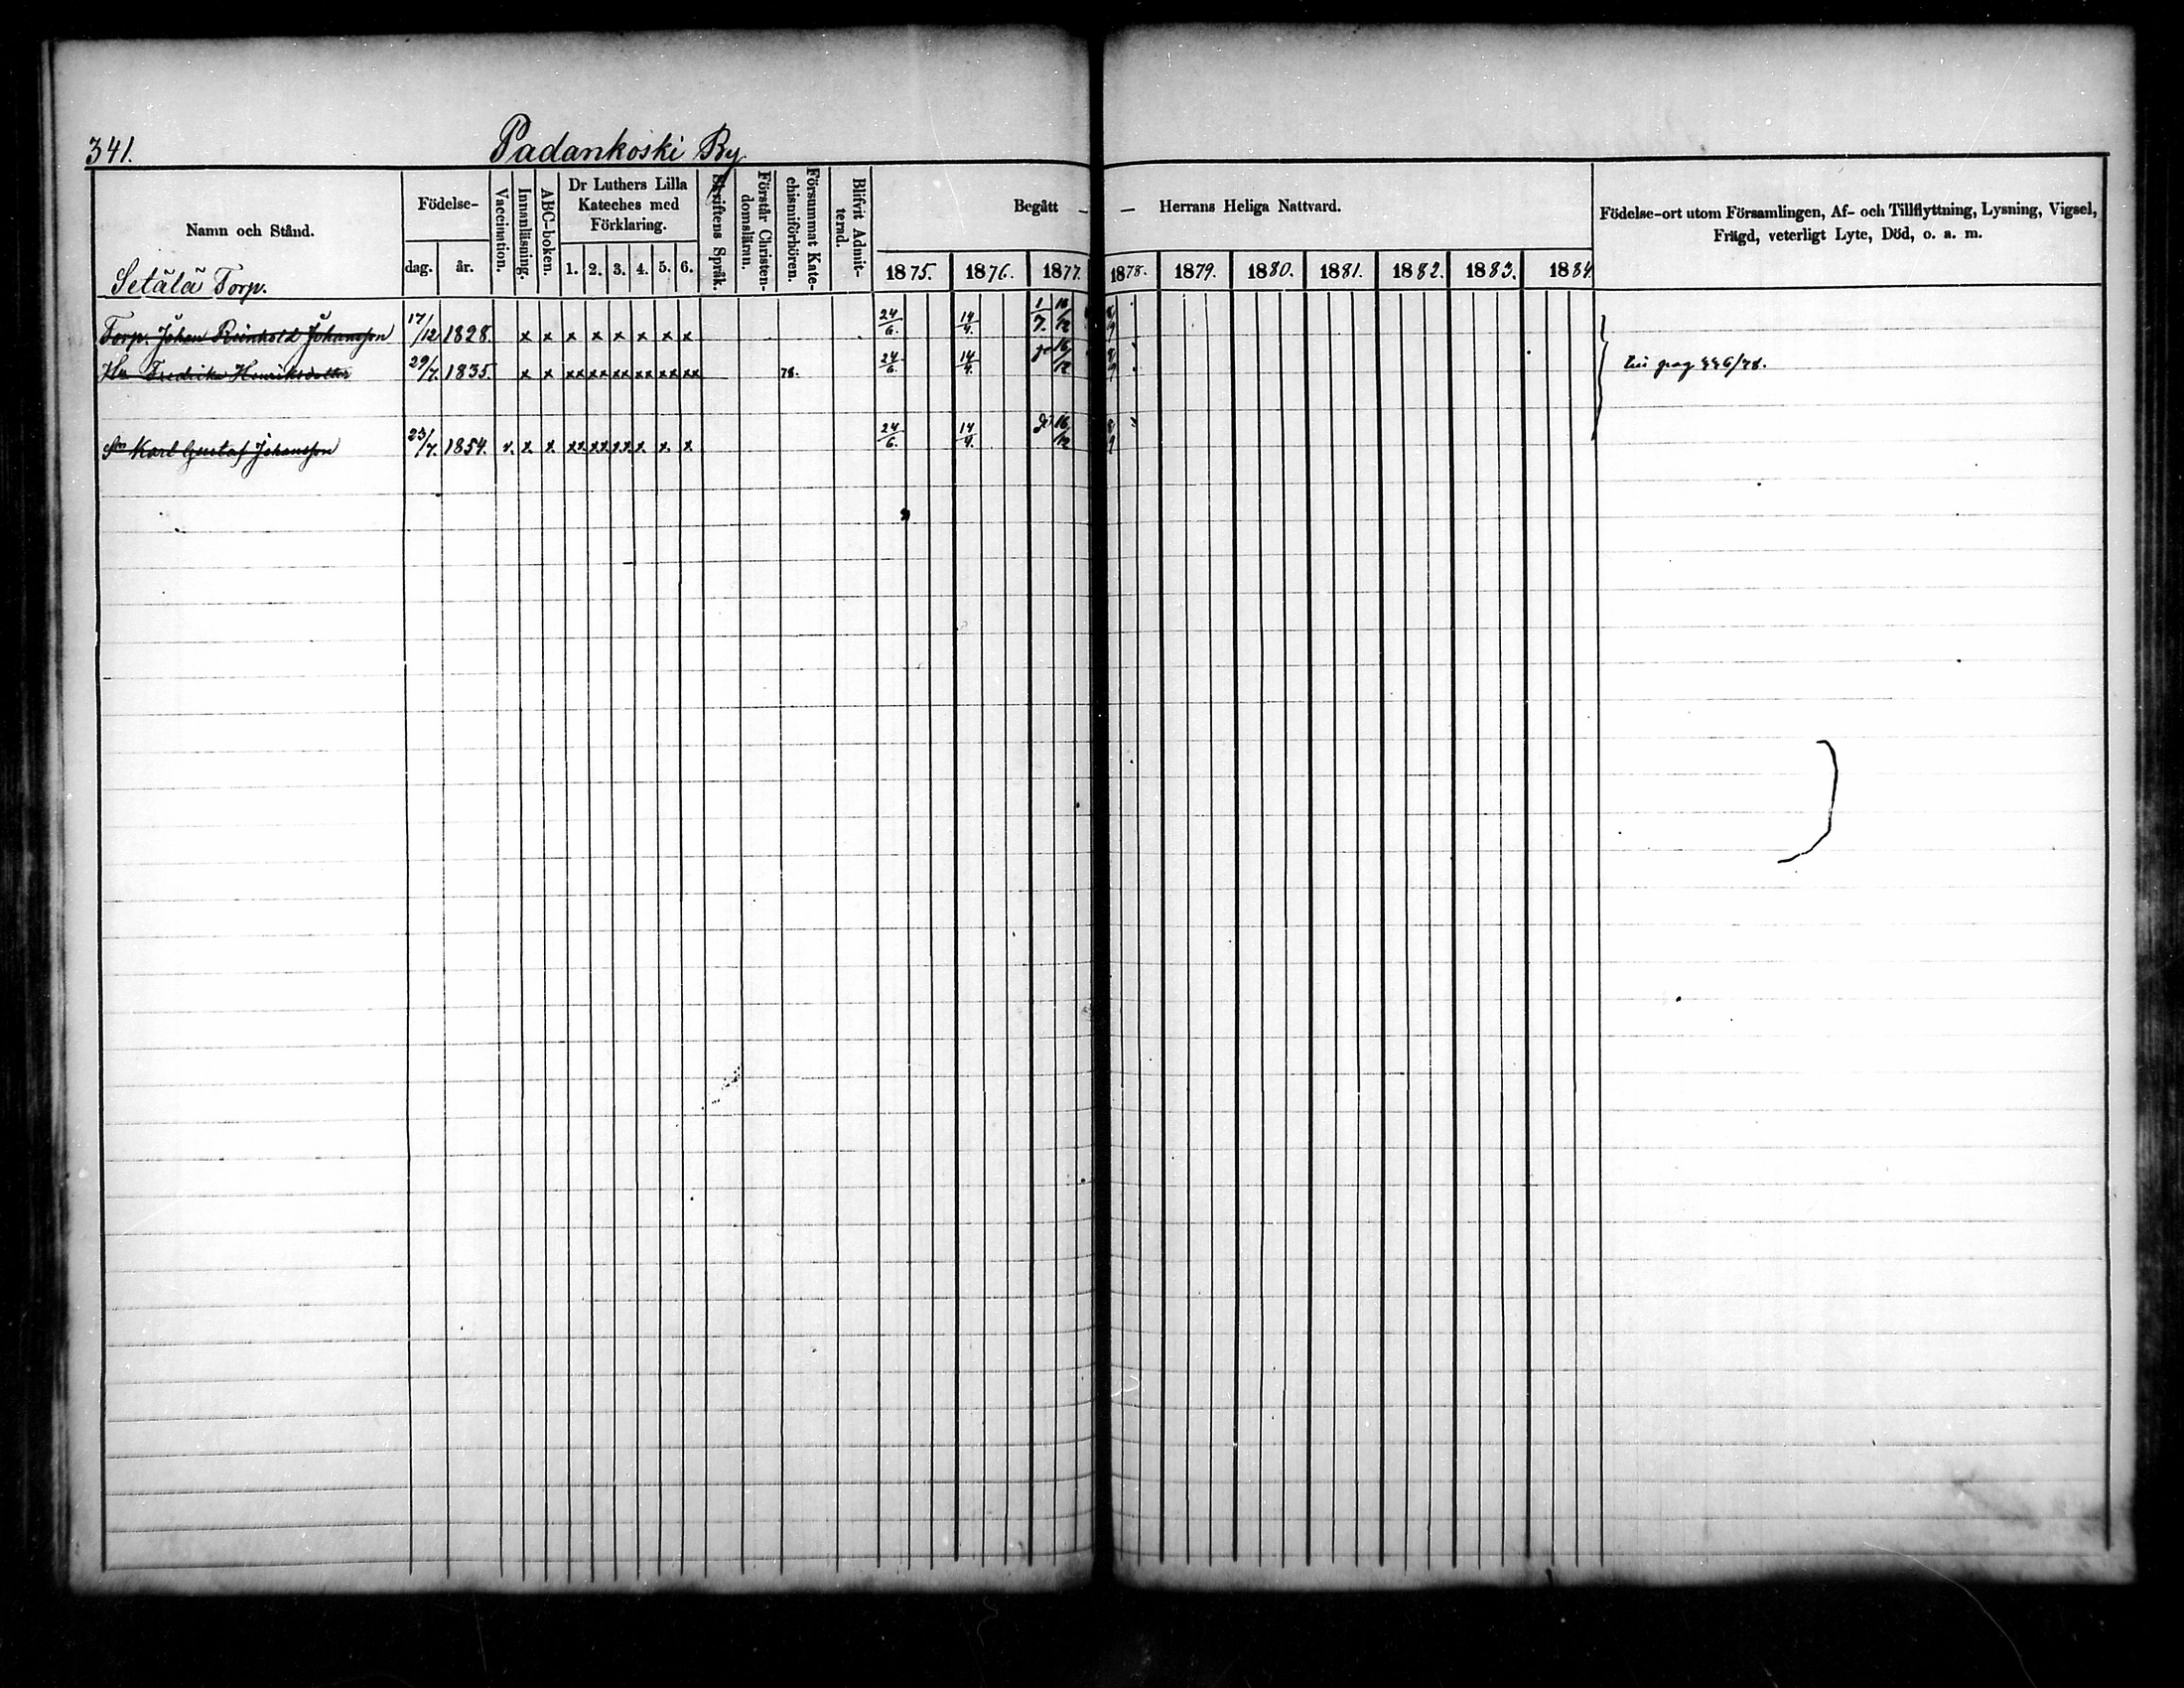 341.
Padankoski By
Namn och Stånd.
Födelse-
dag.
år.
Vaccination.
Innanläsning.
ABC-boken.
Dr Luthers Lilla
Kateches med
Förklaring.
1. 2. 3. 4. 5. 6.
Skriftens Språk.
Förstår Christen-
domslärnn.
Försummat Kate-
chismiförhören.
Blifvit Admit-
terad.
Begått — — Herrans Heliga Nattvard.
1875. 1876. 1877. 1878. 1879. 1880. 1881. 1882. 1883. 1884.
Födelse-ort utom Församlingen, Af- och Tillflyttning, Lysning, Vigsel,
Frägd, veterligt Lyte, Död, o. a. m.
Setälä Torp.
Torp. Johan Reinhold Johansson 17/12 1828. x x x x x x x x 24/6. 14/4. 1/7. 16/12 8/9
Hu Fredrika Henriksdotter 29/7. 1835. x x xx xx xx xx xx xx 78. 24/6. 14/4. 16/12 8/9 pag 446/78.
Sn Karl Gustaf Johansson 23/7. 1854. v. x x xx xx xx x x x 24/6. 14/4. 16/12 8/9